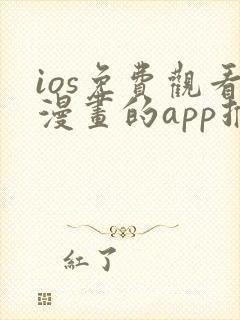 ios免費觀看
漫畫的app推
紅了